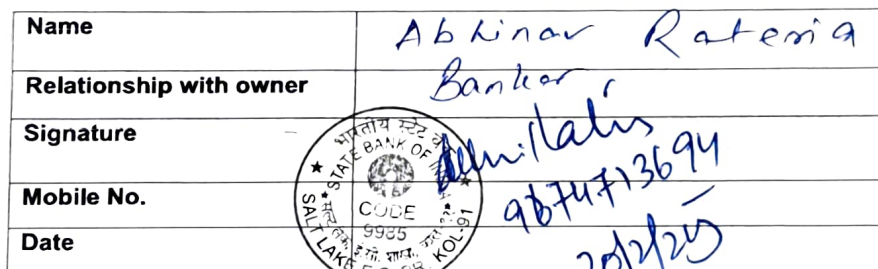 Name Abhinav Rateria
Relationship with owner Banker
Signature
Mobile No. 9674713694
Date 20/2/25
भारतीय स्टेट बैंक
STATE BANK OF INDIA
CODE
9985
SALT LAKE KOL-91